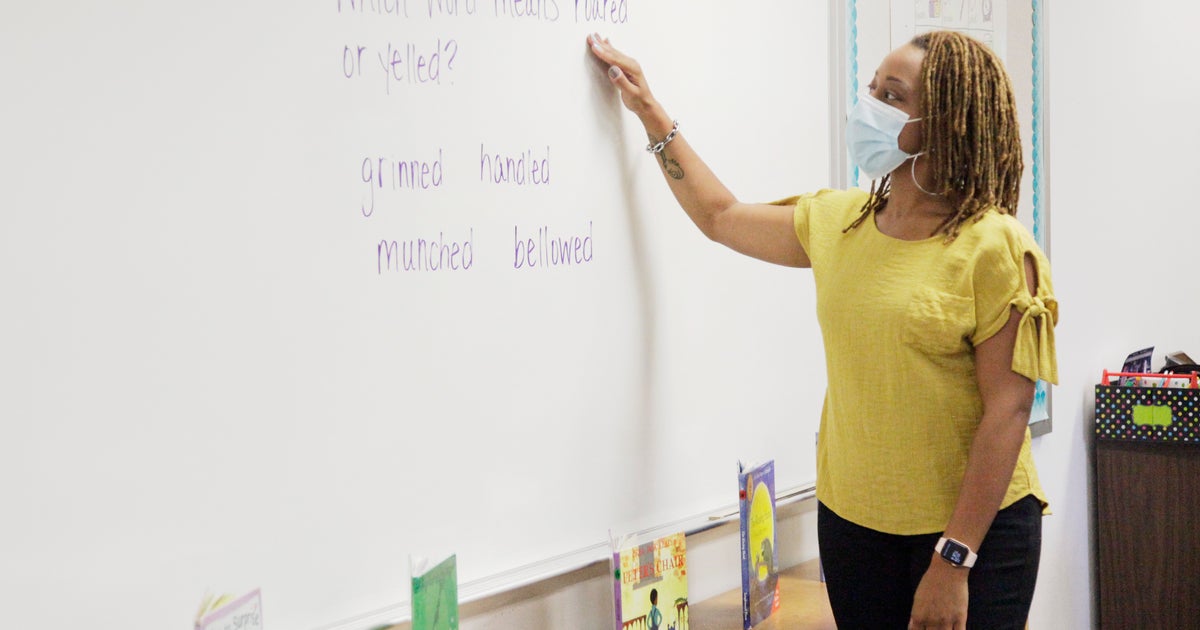 Which word means roared
or yelled?
grinned handled
munched bellowed
PETER'S CHAIR